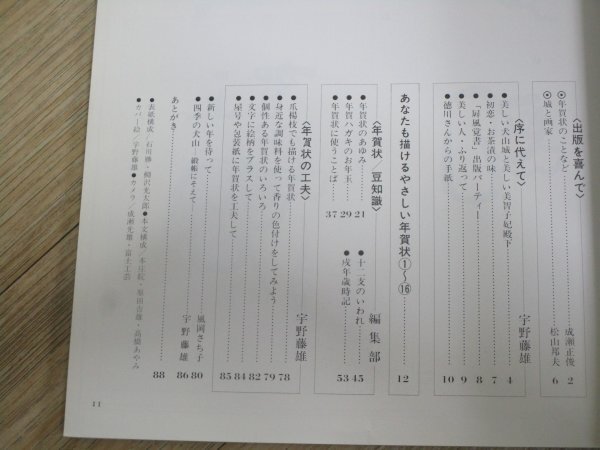 〈出版を喜んで〉
◉年賀状のことなど……成瀬正俊 2
◉城と画家……松山邦夫 6
〈序に代えて〉 宇野藤雄
●美しい犬山城と美しい美智子妃殿下……4
●初恋・お茶漬の味……7
●「屏風覚書」出版パーティー……8
●美しい人・ふり返って……9
●徳川さんからの手紙……10
あなたも描けるやさしい年賀状①〜⑯……12
〈年賀状 豆知識〉 編集部
●年賀状のあゆみ……21
●年賀ハガキのお年玉……29
●年賀状に使うことば……37
●十二支のいわれ……45
●戌年歳時記……53
〈年賀状の工夫〉 宇野藤雄
●爪楊枝でも描ける年賀状……78
●身近な調味料を使って香りの色付けをしてみよう……79
●個性ある年賀状のいろいろ……82
●文字に絵柄をプラスして……84
●屋号や包装紙に年賀状を工夫して……85
●新しい年を待って……風岡さち子 80
●四季の犬山 緞帳にそえて……宇野藤雄 86
あとがき……88
●表紙構成/石川勝・
●カバー絵/宇野藤雄●カメラ/成瀬光雄・富士工芸
11